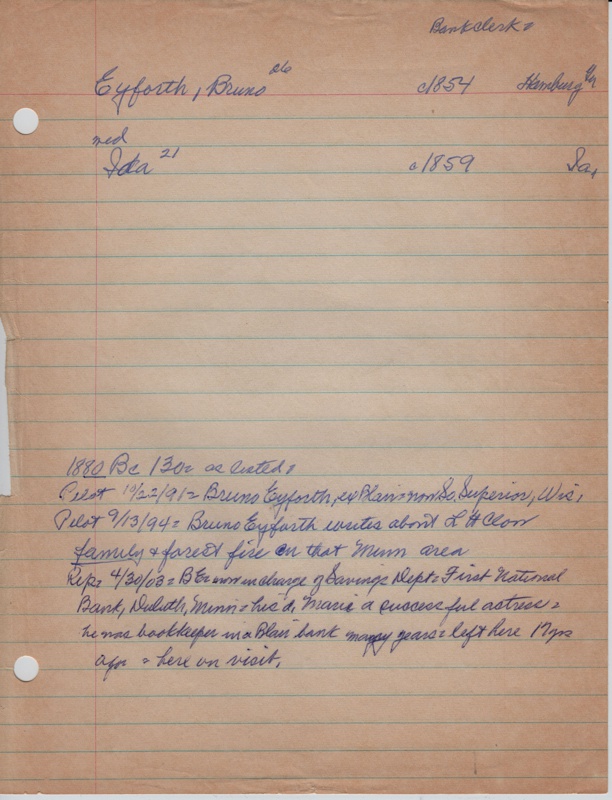 Bank clerk=
Eyforth, Bruno 26 c1854 Hamburg
med
Ida 21 c1859 Ia,
1880 Bc 130= as listed=
Pilot 10/22/91= Bruno Eyforth, ex Blair= now So, Superior, Wis,
Pilot 9/13/94= Bruno Eyforth writes about L H Clow
family & forest fire on that Minn area
Rep= 4/30/03= BE now in charge of Savings Dept= First National
Bank, Duluth, Minn= his d, Marie a successful actress=
he was bookkeeper in a Blair bank many years= left here 17 yrs
ago = here on visit,